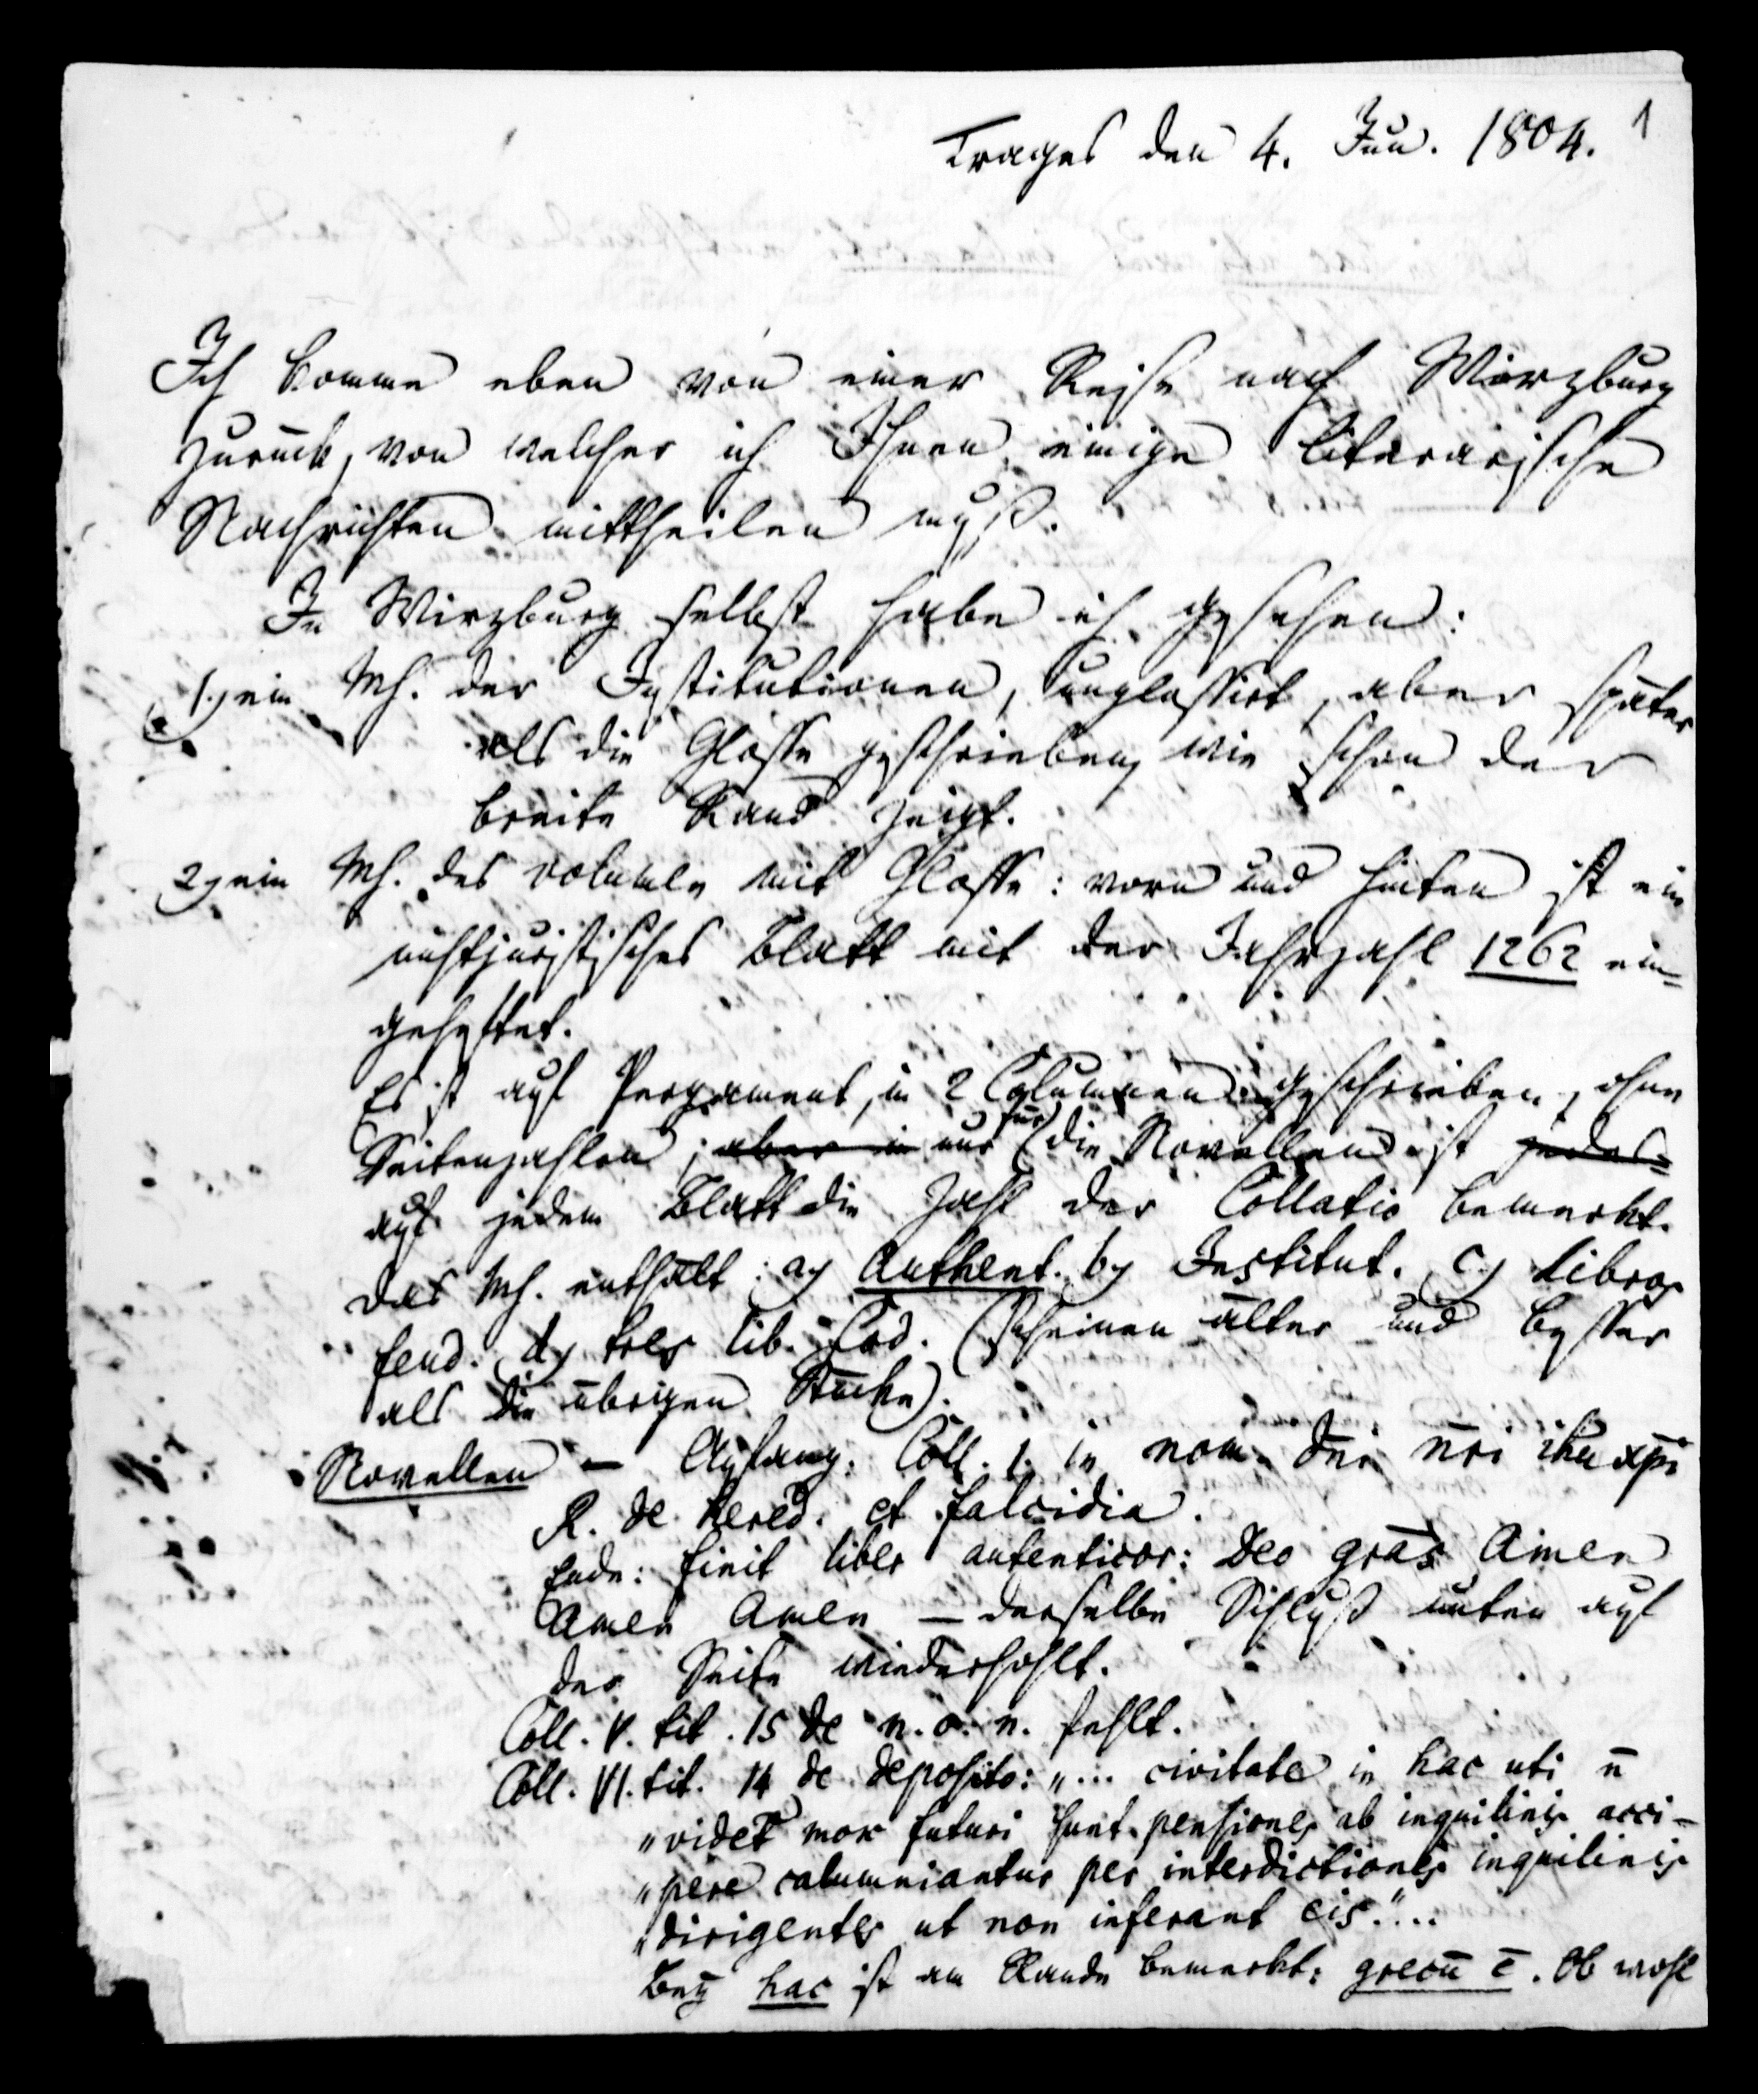 Trages den 4. Jun. 1804. 1
Ich komme eben von einer Reise nach Wirzburg
zurück, von welcher ich Ihnen einige literarische
Nachrichten mittheilen muß.
In Wirzburg selbst habe ich gesehen:
1.) ein Ms. der Institutionen, unglossirt, aber später
als die Glosse geschrieben, wie schon der
breite Rand zeigt.
2) ein Ms. des volumen mit Glosse: vorn und hinten ist ein
nichtjuristisches Blatt mit der Jahrzahl 1262 ein=
geheftet.
Es ist auf Pergament, in 2 Columnen geschrieben, ohne
Seitenzahlen; aber in nur für die Novellen ist jedes=
auf jedem Blatt die Zahl der Collatio bemerkt.
Das Ms. enthält: a) Authent. b) Institut. c) libros
feud. d) tres lib. Cod. (scheinen älter und besser
als die übrigen Stücke).
Novellen – Anfang: Coll. 1. in nom. dni nri ihu xpi
R. de hered. et falcidia.
Ende: finit liber autenticor: Deo gras Amen
Amen Amen – derselbe Schluß unten auf
der Seite wiederhohlt.
Coll. V. tit. 15 de n. o. n. fehlt.
Coll. VI. tit. 14 de deposito: „... civitate in hac uti n̄
„videt̄ mox futuri sunt pensiones ab inquilinis acci–
„pere calumniantur per interdictiones inquilinis
„dirigentes ut non inferant eis."...
Bey hac ist am Rande bemerkt: grecū ē. Ob wohl